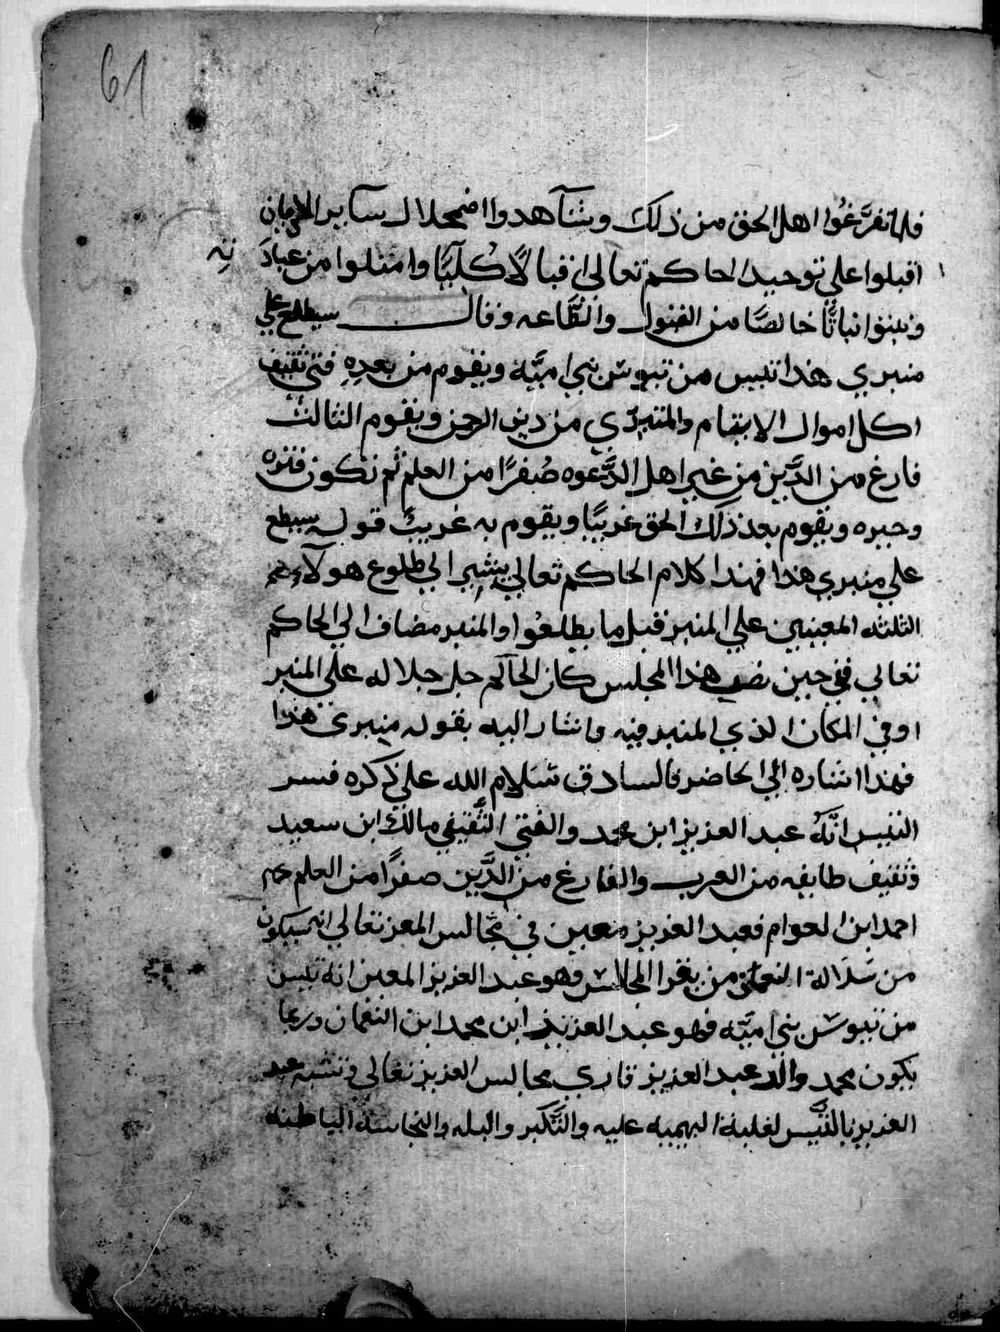 61
فلما تفرغوا اهل الحق من ذلك وشآهدوا اضمحلال سآير الاديان
اقبلوا علي توحيد الحاكم تعالي اقبالًا كُليًا وامتلوا من عبادته
وثبتوا ثباتًا خالصًا من القنول والقناعه وقال سيطلع علي
منبري هذا تيس من تيوس بني اميَّه ويقوم من بعدِهِ فتي ثقيف
اكل اموال الايتام والمتبرّي من دين الرحمن ويقوم الثالث
فارغ من الدَّين من غير اهل الدَّعوه صُفرًا من العلم ثم تكون فتره
وحيره ويقوم بعد ذلك الحق غريبًا ويقوم به غريبٌ قوله سيطلع
علي منبري هذا فهذا كلام الحاكم تعالي يشير الي طلوع هولآء
الثلثه المعينين علي المنبر قبل ما يطلعُوا والمنبر مضاف الي الحاكم
تعالي ففي حين نص هذا المجلس كان الحاكم جل جلاله علي المنبر
او في المكان الذي المنبر فيه واشار اليه بقوله منبري هذا
فهذا اشاره الي الحاضر فالسادق سَلام الله علي ذكره فسر
التيس انَّهُ عبد العزيز ابن محمد والفتي الثَّقيفي مالك ابن سعيد
وثقيف طايفه من العرب والفارغ من الدَّين صفرًا من العلم هم
احمد ابن العوام فعبد العزيز معين في مجالس المعز تعالي انه سيكون
من سَلَالة النعمان من يقرا المجالس وهو عبد العزيز المعين انه تيس
من تيوس بني اميَّه فهو عبد العزيز ابن محمد ابن النعمان وربما
يكون محمد والد عبد العزيز قاري مجالس العزيز تعالي وتشبه عبد
العزيز بالتَّيس لغلبة البهيميه عليه والتَّكبر والبله والنجاسة الباطنه